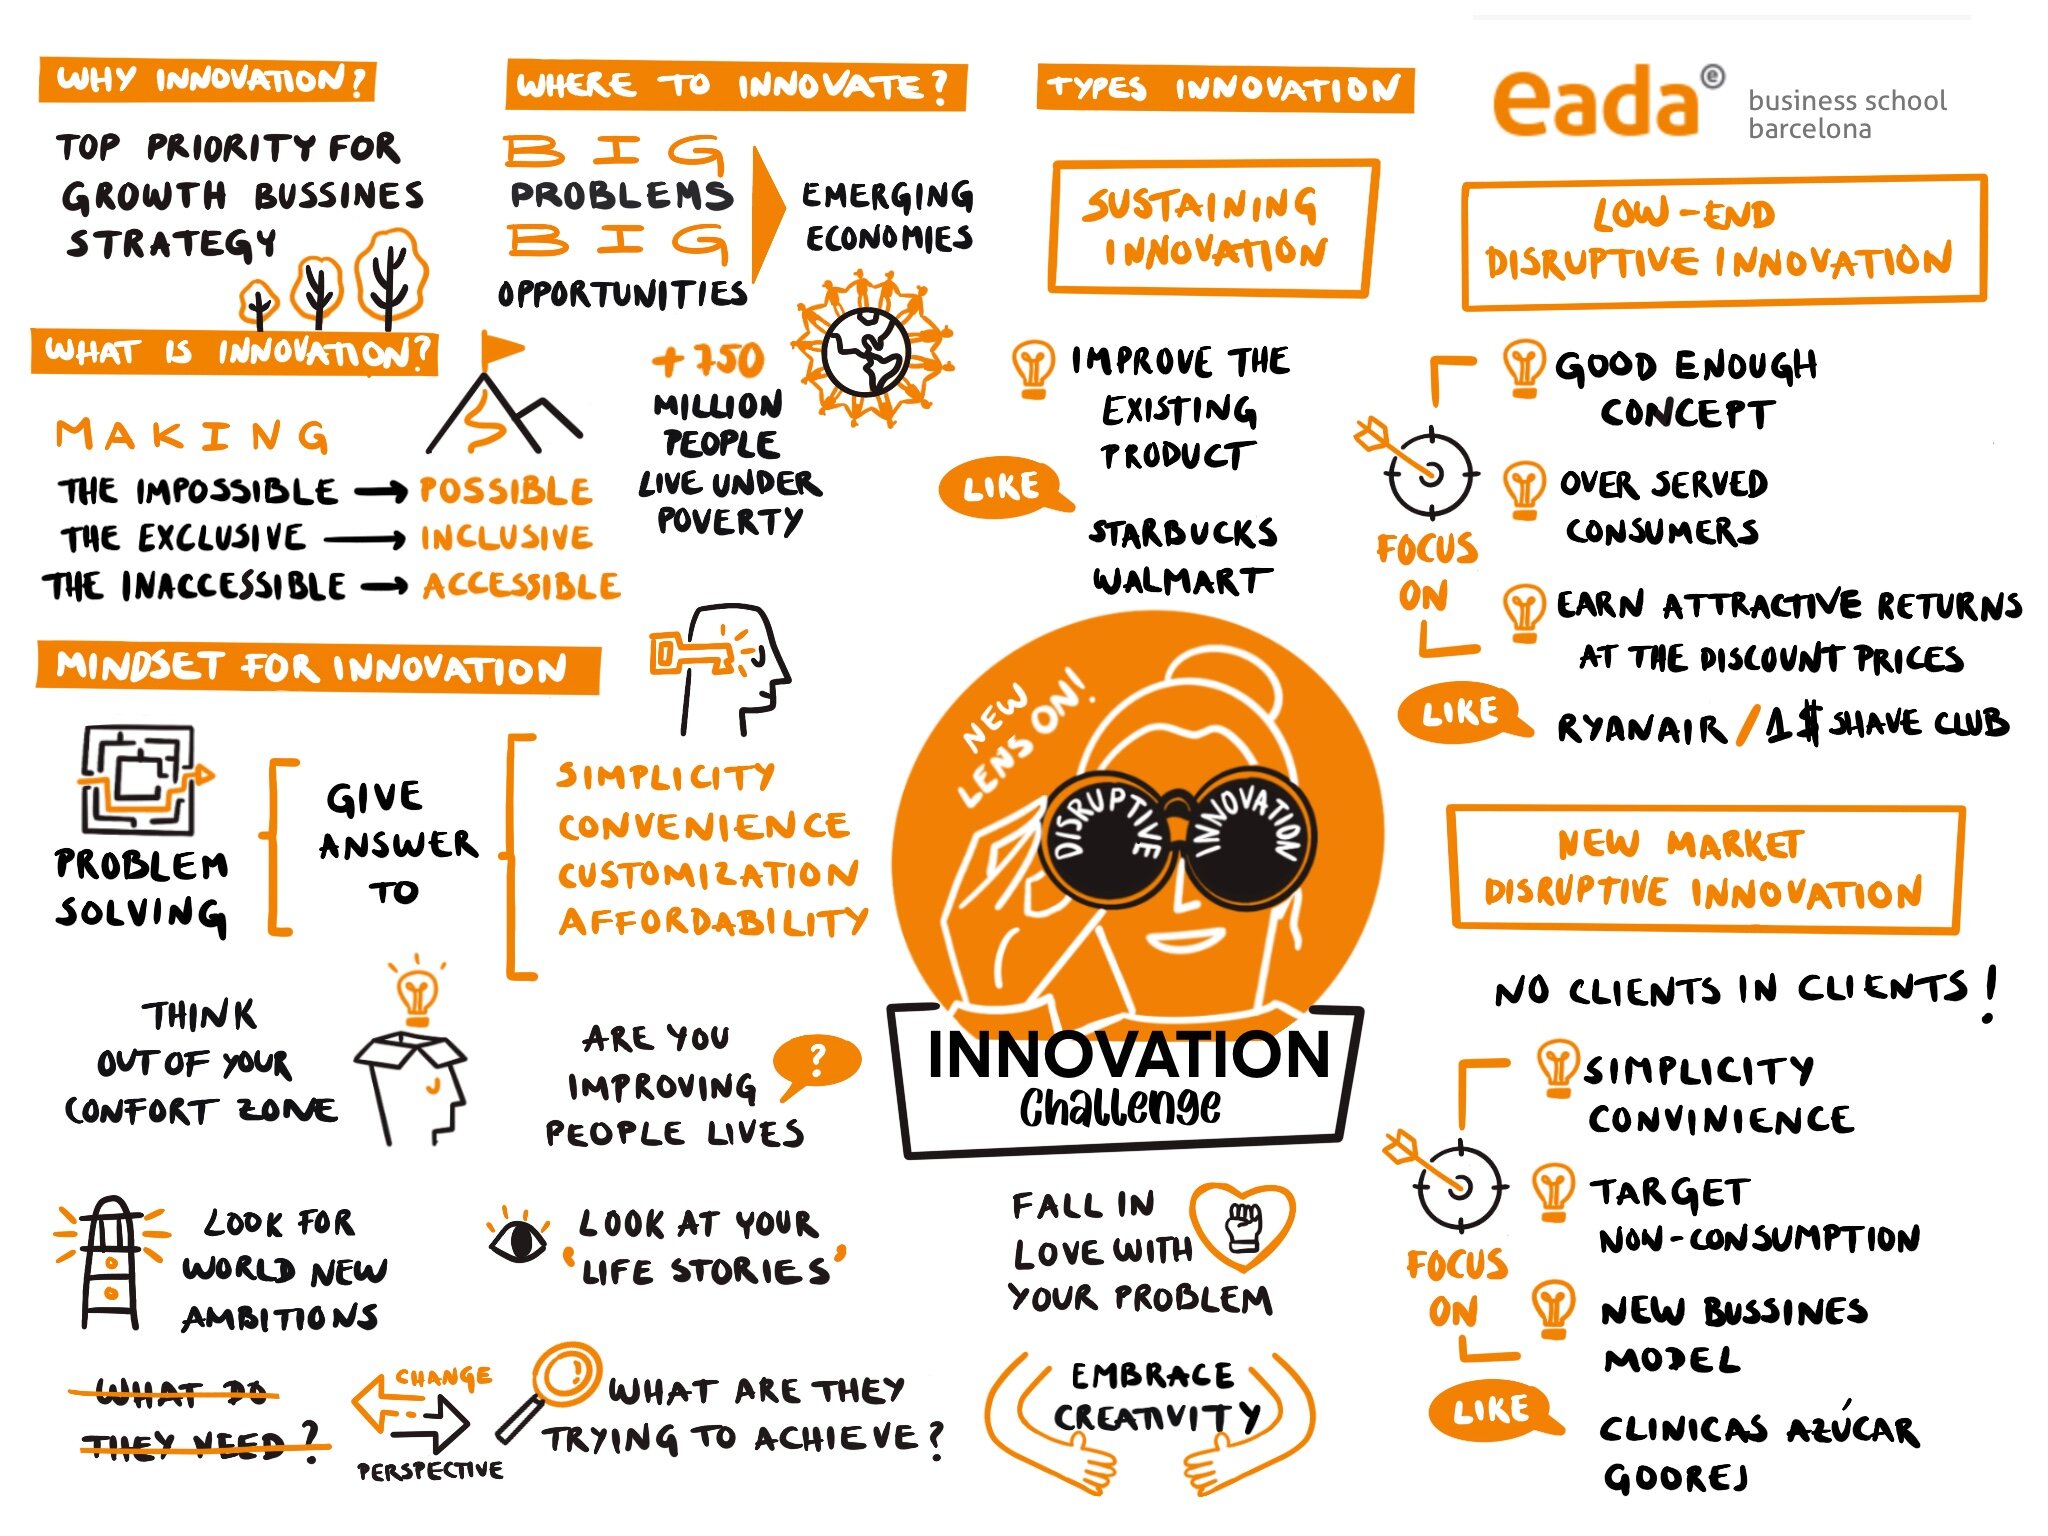 WHY INNOVATION?
TOP PRIORITY FOR
GROWTH BUSSINES
STRATEGY
WHAT IS INNOVATION?
MAKING
THE IMPOSSIBLE → POSSIBLE
THE EXCLUSIVE → INCLUSIVE
THE INACCESSIBLE → ACCESSIBLE
WHERE TO INNOVATE?
BIG
PROBLEMS
BIG
OPPORTUNITIES
EMERGING
ECONOMIES
+750
MILLION
PEOPLE
LIVE UNDER
POVERTY
MINDSET FOR INNOVATION
PROBLEM
SOLVING
GIVE
ANSWER
TO
SIMPLICITY
CONVENIENCE
CUSTOMIZATION
AFFORDABILITY
THINK
OUT OF YOUR
CONFORT ZONE
ARE YOU
IMPROVING
PEOPLE LIVES
?
LOOK FOR
WORLD NEW
AMBITIONS
LOOK AT YOUR
'LIFE STORIES'
WHAT DO
THEY NEED?
CHANGE
PERSPECTIVE
WHAT ARE THEY
TRYING TO ACHIEVE?
NEW
LENS ON!
DISRUPTIVE
INNOVATION
INNOVATION
Challenge
FALL IN
LOVE WITH
YOUR PROBLEM
EMBRACE
CREATIVITY
TYPES INNOVATION
SUSTAINING
INNOVATION
IMPROVE THE
EXISTING
PRODUCT
LIKE
STARBUCKS
WALMART
eada e
business school
barcelona
LOW-END
DISRUPTIVE INNOVATION
FOCUS
ON
GOOD ENOUGH
CONCEPT
OVER SERVED
CONSUMERS
EARN ATTRACTIVE RETURNS
AT THE DISCOUNT PRICES
LIKE
RYANAIR / 1$ SHAVE CLUB
NEW MARKET
DISRUPTIVE INNOVATION
NO CLIENTS IN CLIENTS!
FOCUS
ON
SIMPLICITY
CONVINIENCE
TARGET
NON-CONSUMPTION
NEW BUSSINES
MODEL
LIKE
CLINICAS AZÚCAR
GOOREJ